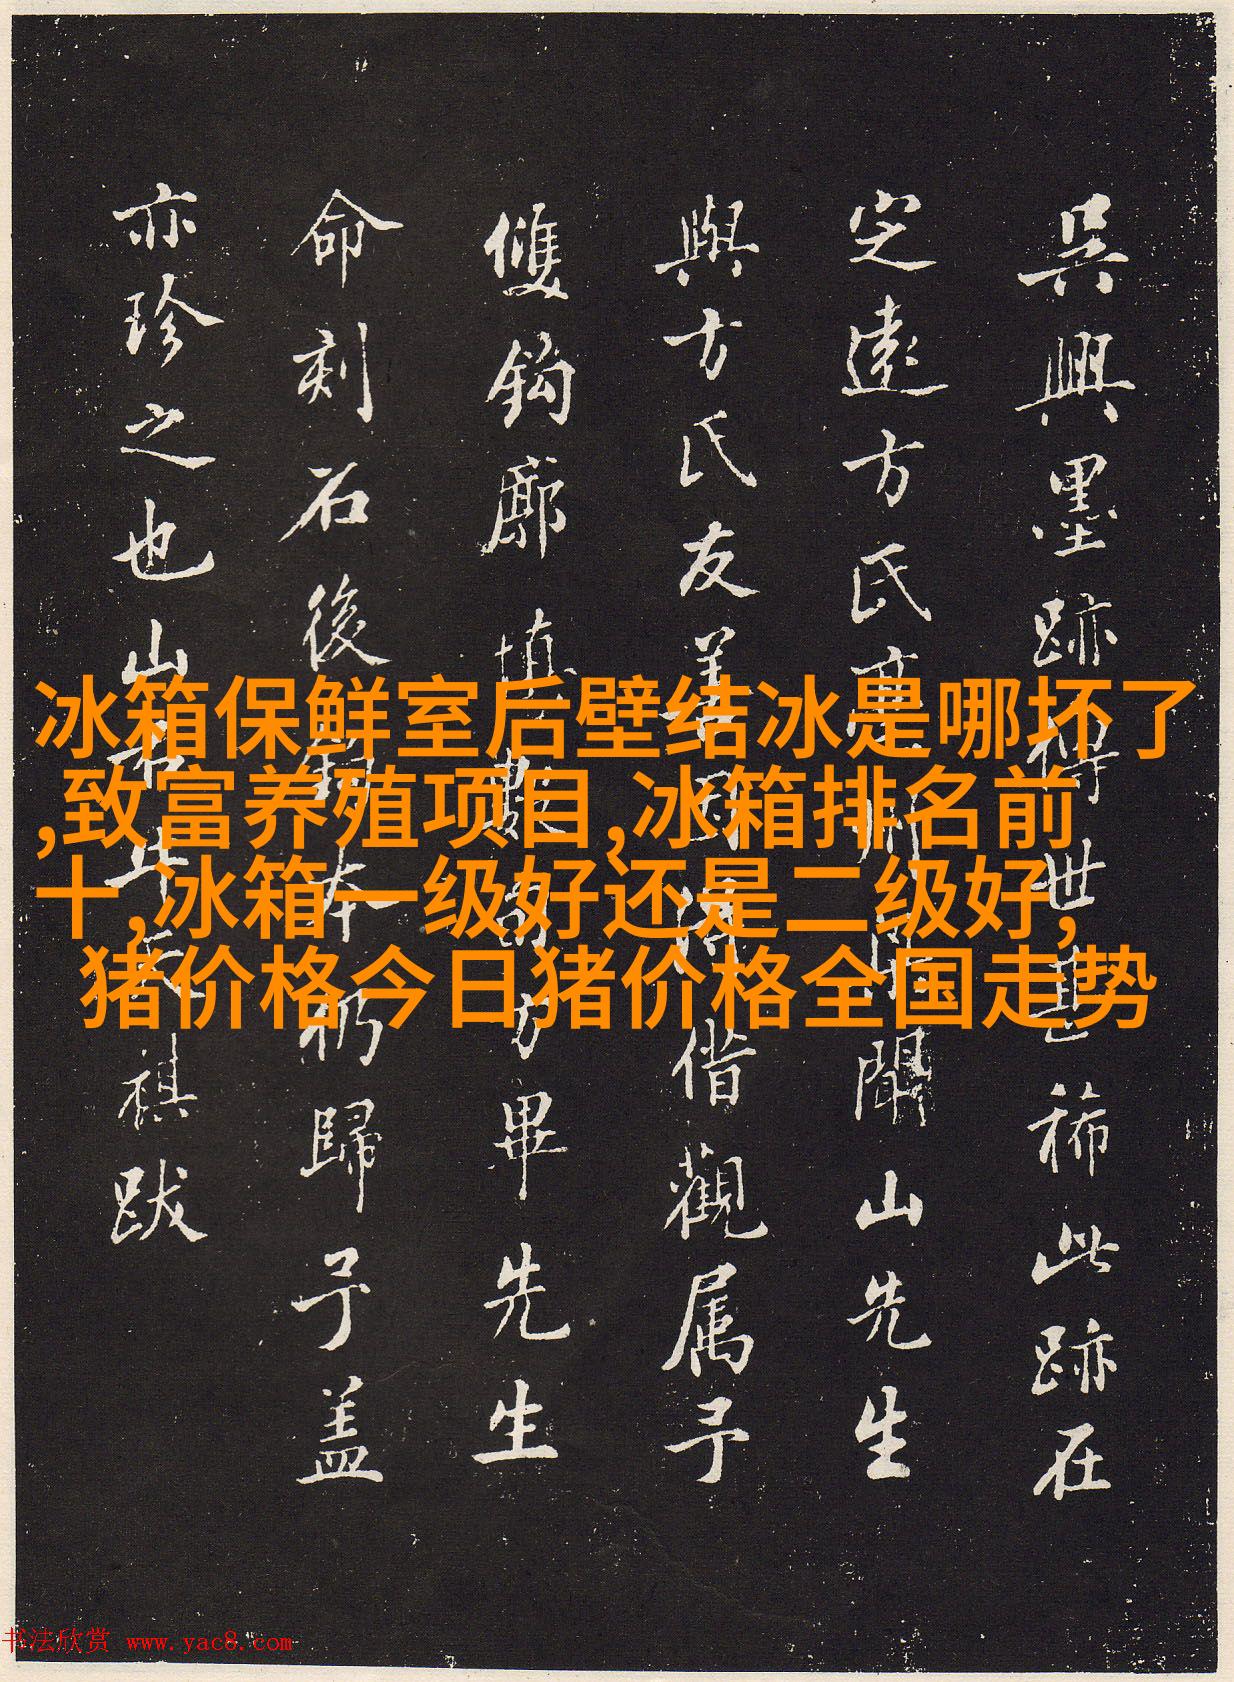 冰箱保鲜室后壁结冰是哪坏了
,致富养殖项目,冰箱排名前
十,冰箱一级好还是二级好,
猪价格今日猪价格全国走势
吳興墨跡傳世甚稀此跡在
定遠方氏裏聞山先生
與方氏友善因得借觀属予
雙鈎廓填數
畢先生
命刻石後
本仍歸予盖
亦珍之也山
祺跋
书法欣赏 www.yac8.com